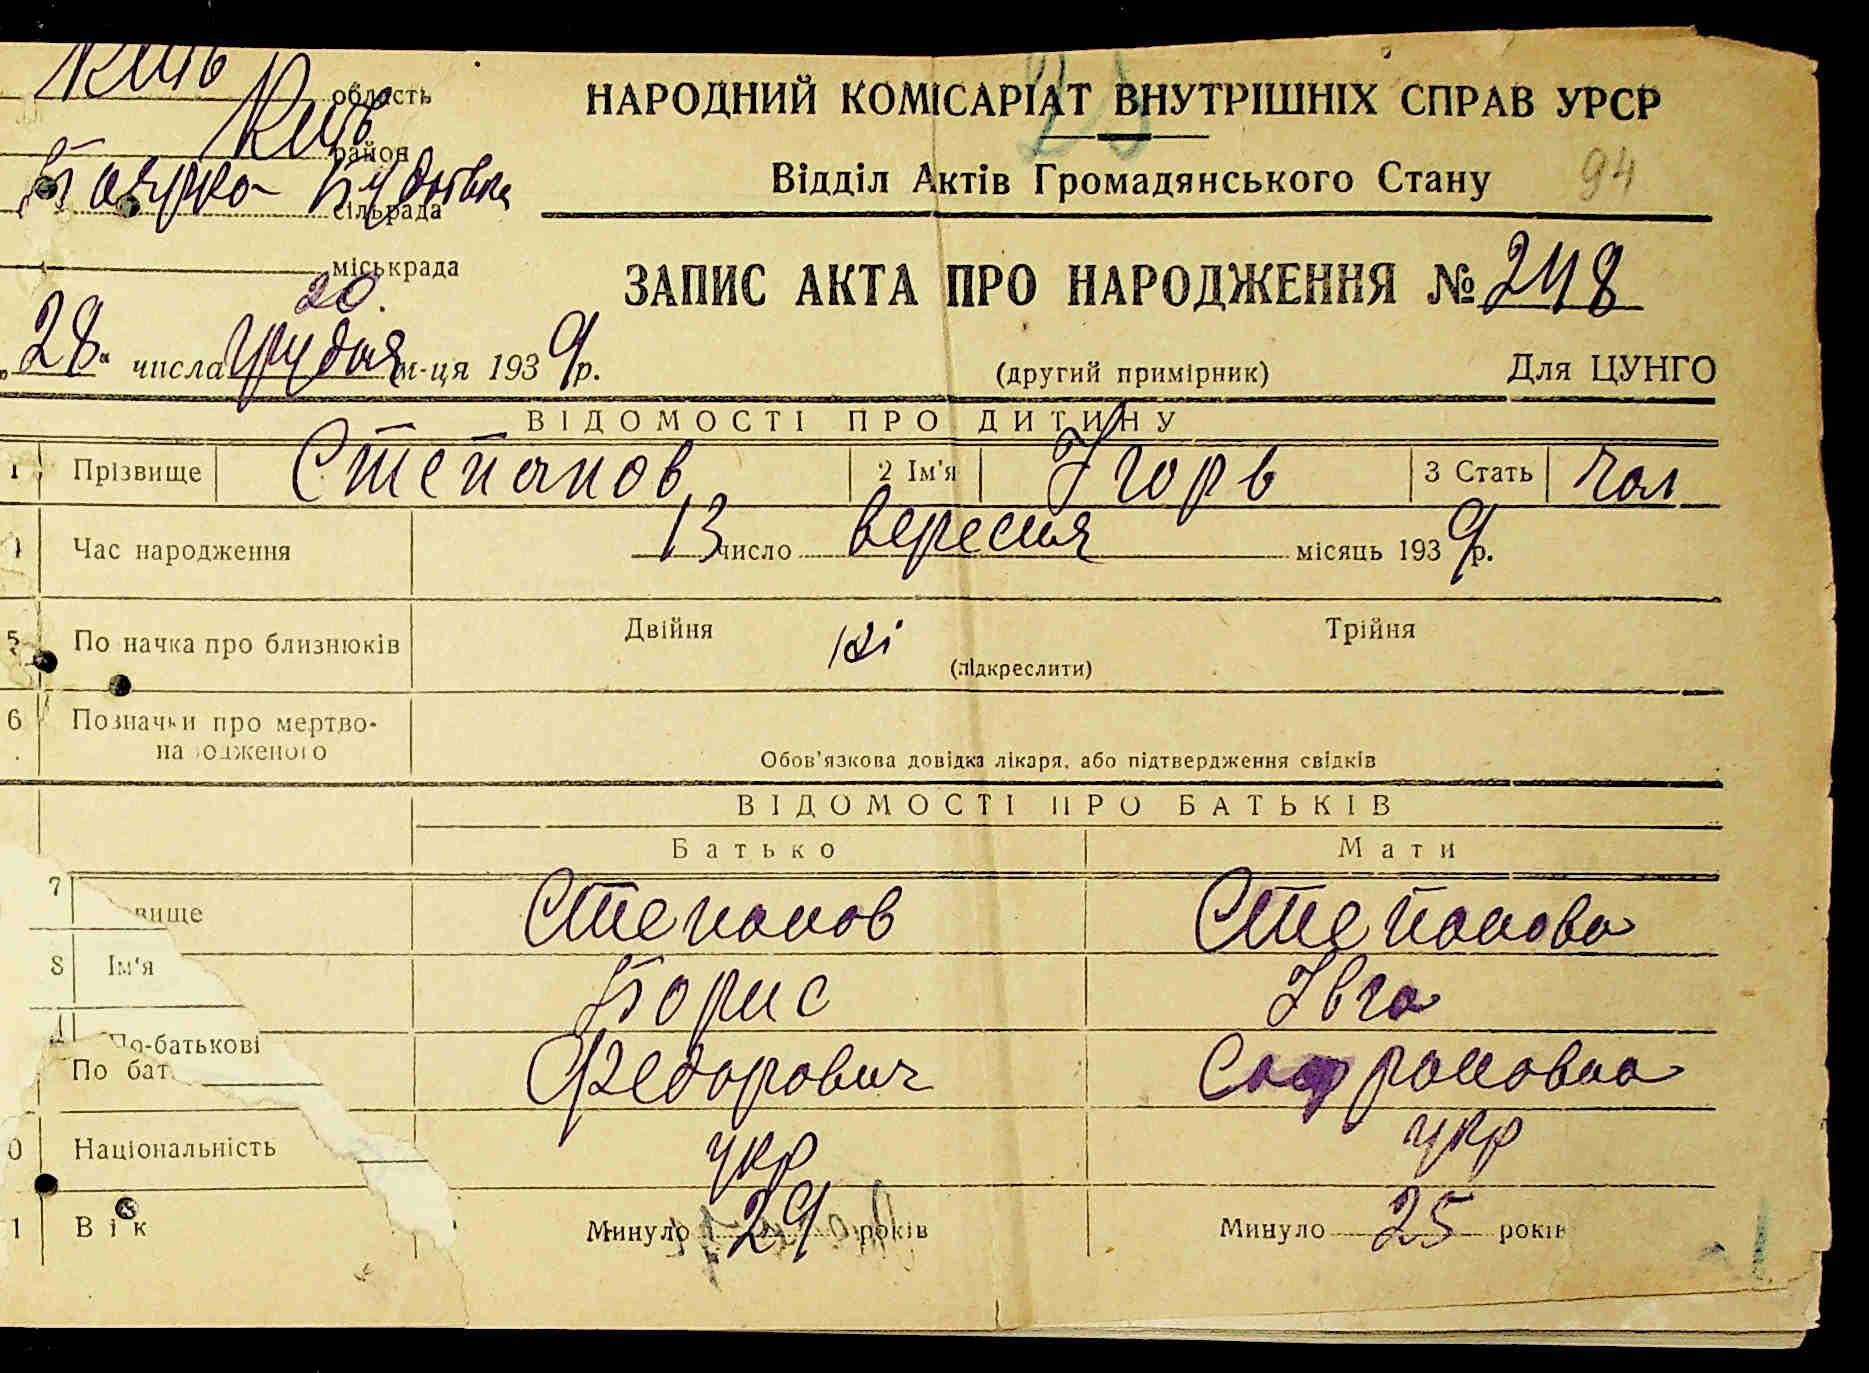 Київ область
Київ район
Боярка Будаївка сільрада
міськрада
20.
„28“ числа грудня м-ця 1939 р.
НАРОДНИЙ КОМІСАРІАТ ВНУТРІШНІХ СПРАВ УРСР
Відділ Актів Громадянського Стану
94
ЗАПИС АКТА ПРО НАРОДЖЕННЯ № 248
(другий примірник) Для ЦУНГО
ВІДОМОСТІ ПРО ДИТИНУ
1 Прізвище Степанов 2 Ім'я Ігорь 3 Стать Чол
Час народження 13 число вересня місяць 1939 р.
5 По начка про близнюків Двійня ні Трійня
(підкреслити)
6 Позначки про мертво-
народженого
Обов'язкова довідка лікаря, або підтвердження свідків
ВІДОМОСТІ ПРО БАТЬКІВ
Батько Мати
7 звище Степанов Степанова
8 Ім'я Борис Івга
По-батькові
По бат Федорович Сафроновна
0 Національність укр укр
1 Вік Минуло 29 років Минуло 25 років